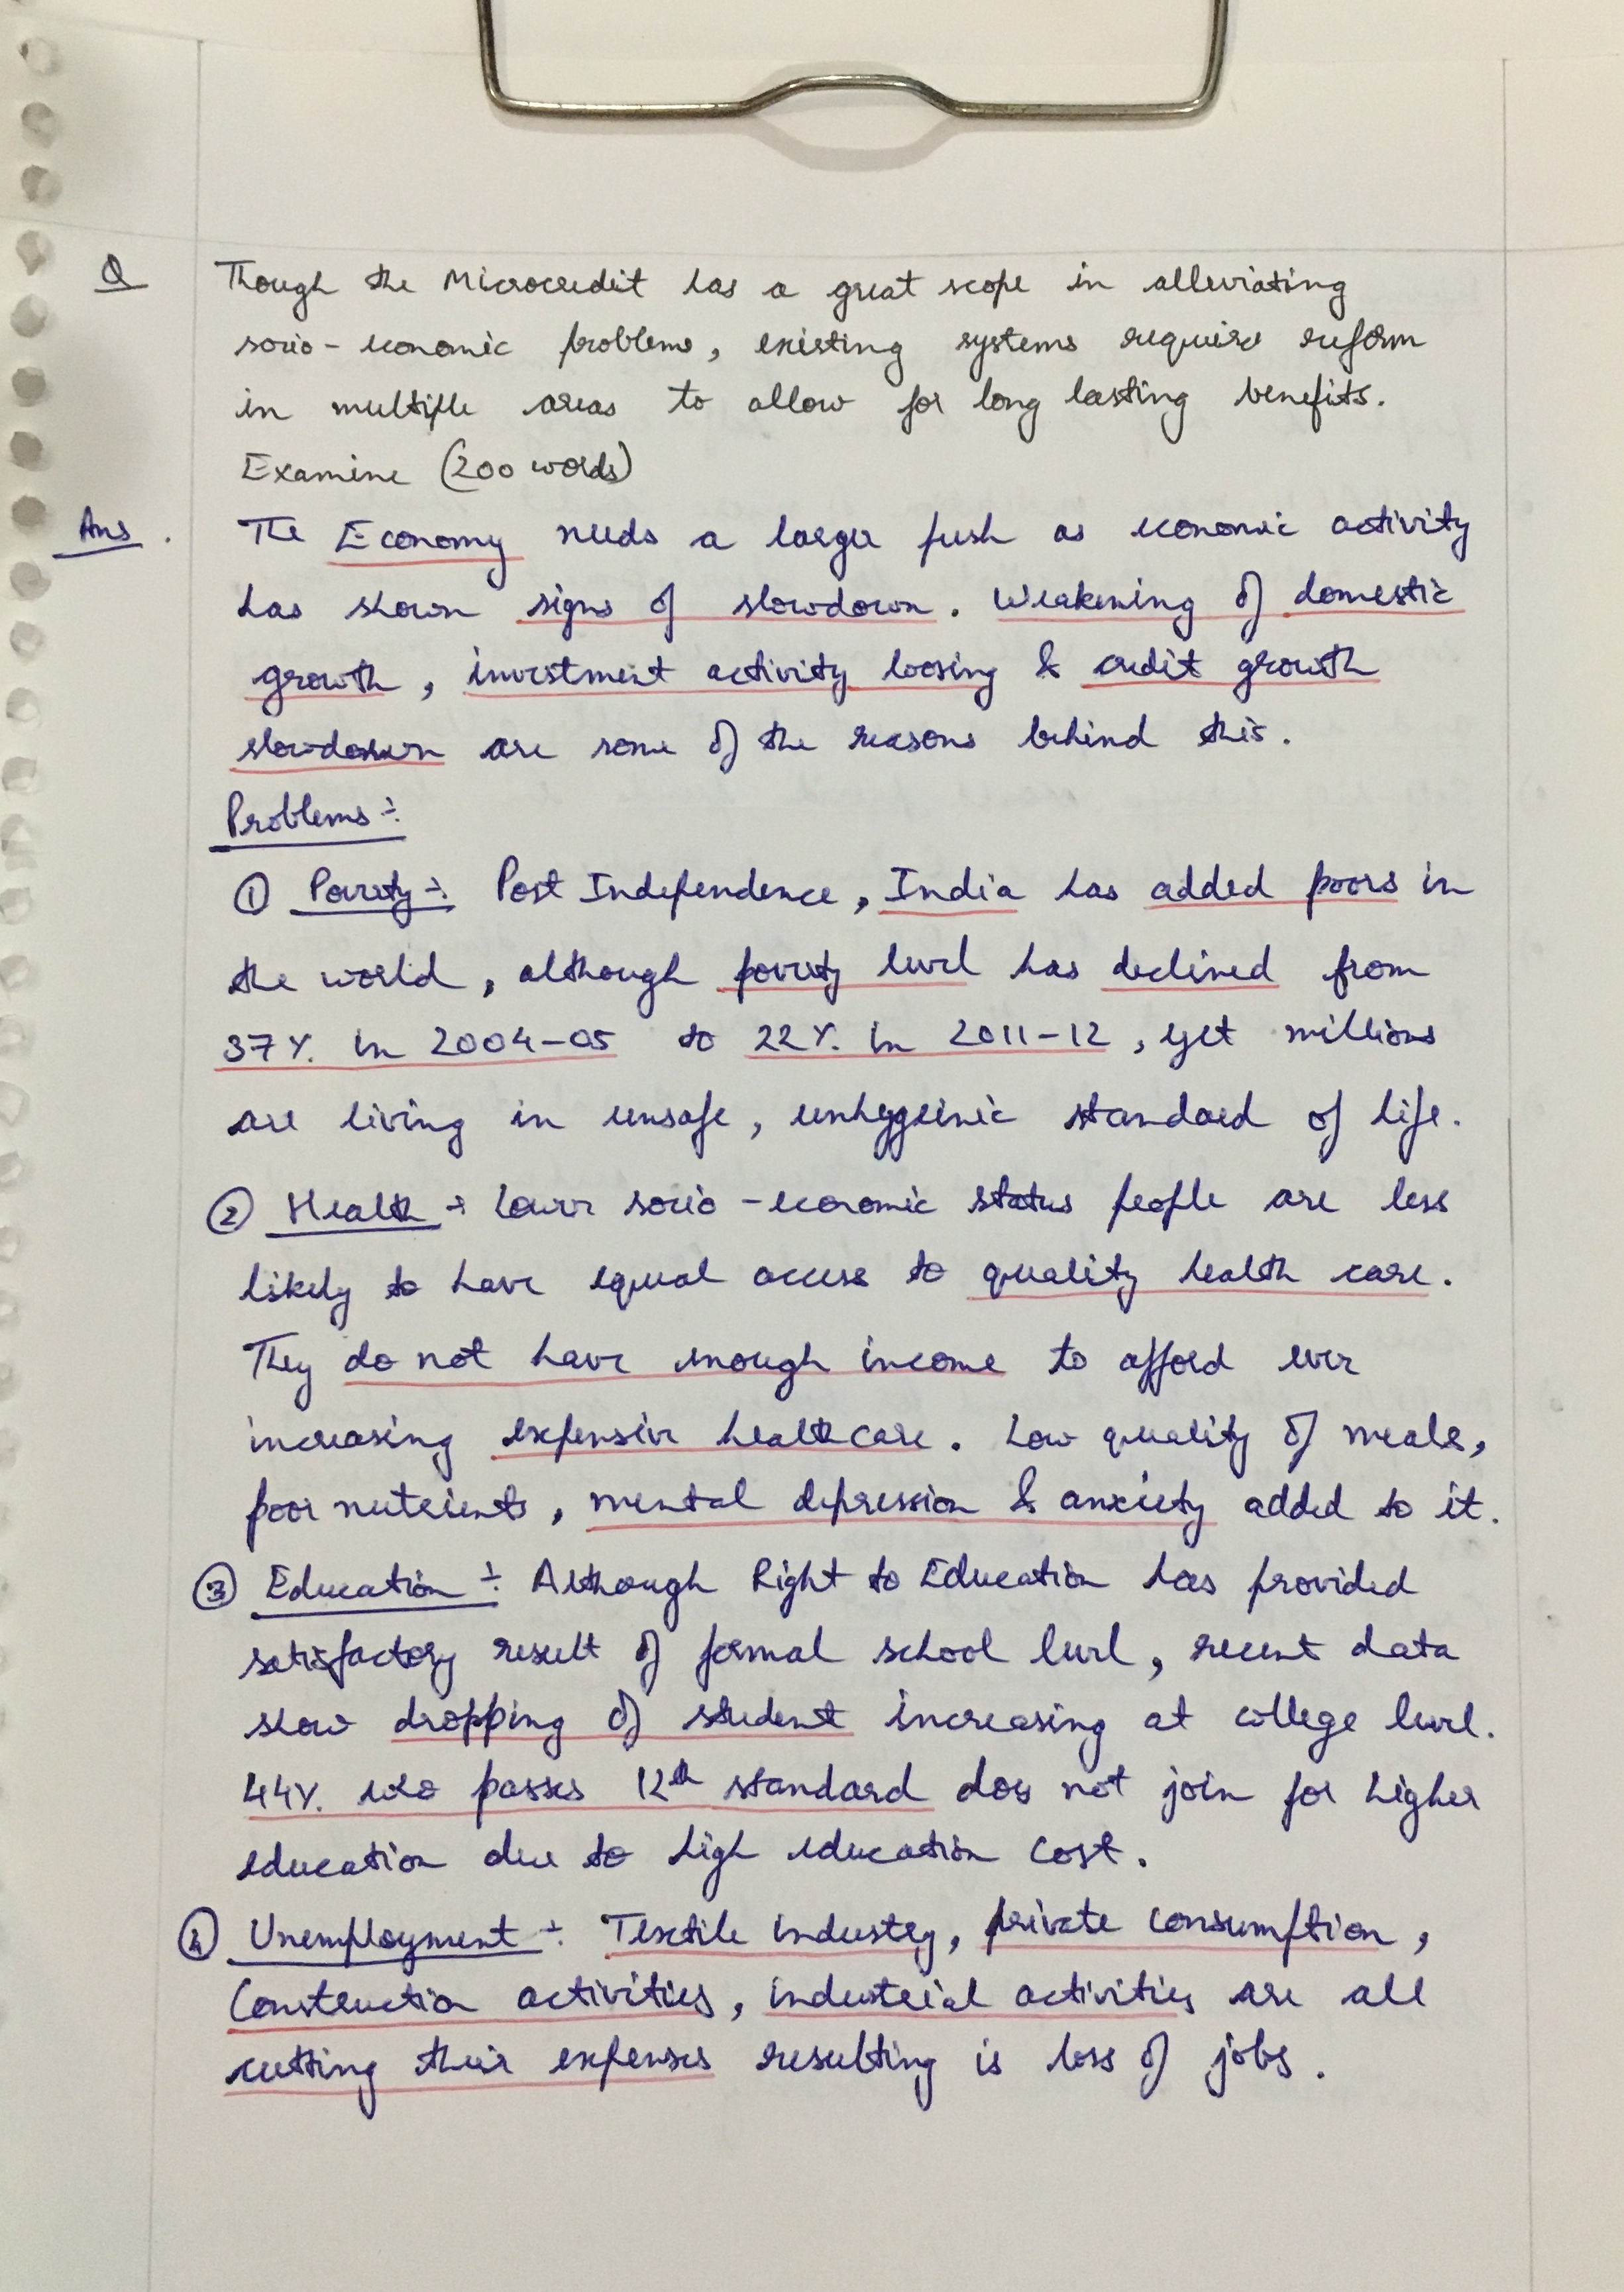 Q Though the Microcredit has a great scope in alleviating
socio-economic problems, existing systems require reform
in multiple areas to allow for long lasting benefits.
Examine (200 words)
Ans. The Economy needs a larger push as economic activity
has shown signs of slowdown. Weakening of domestic
growth, investment activity loosing & credit growth
slowdown are some of the reasons behind this.
Problems ÷
① Poverty ÷ Post Independence, India has added poors in
the world, although poverty level has declined from
37%. in 2004-05 to 22%. in 2011-12, yet millions
are living in unsafe, unhygeinic standard of life.
② Health ÷ Lower socio-economic status people are less
likely to have equal access to quality health care.
They do not have enough income to afford ever
increasing expensive healthcare. Low quality of meals,
poor nutrients, mental depression & anxiety added to it.
③ Education ÷ Although Right to Education has provided
satisfactory result of formal school level, recent data
show dropping of student increasing at college level.
44%. who passes 12th standard does not join for higher
education due to high education cost.
④ Unemployment ÷ Textile industry, private consumption,
Construction activities, industrial activities are all
cutting their expenses resulting is loss of jobs.